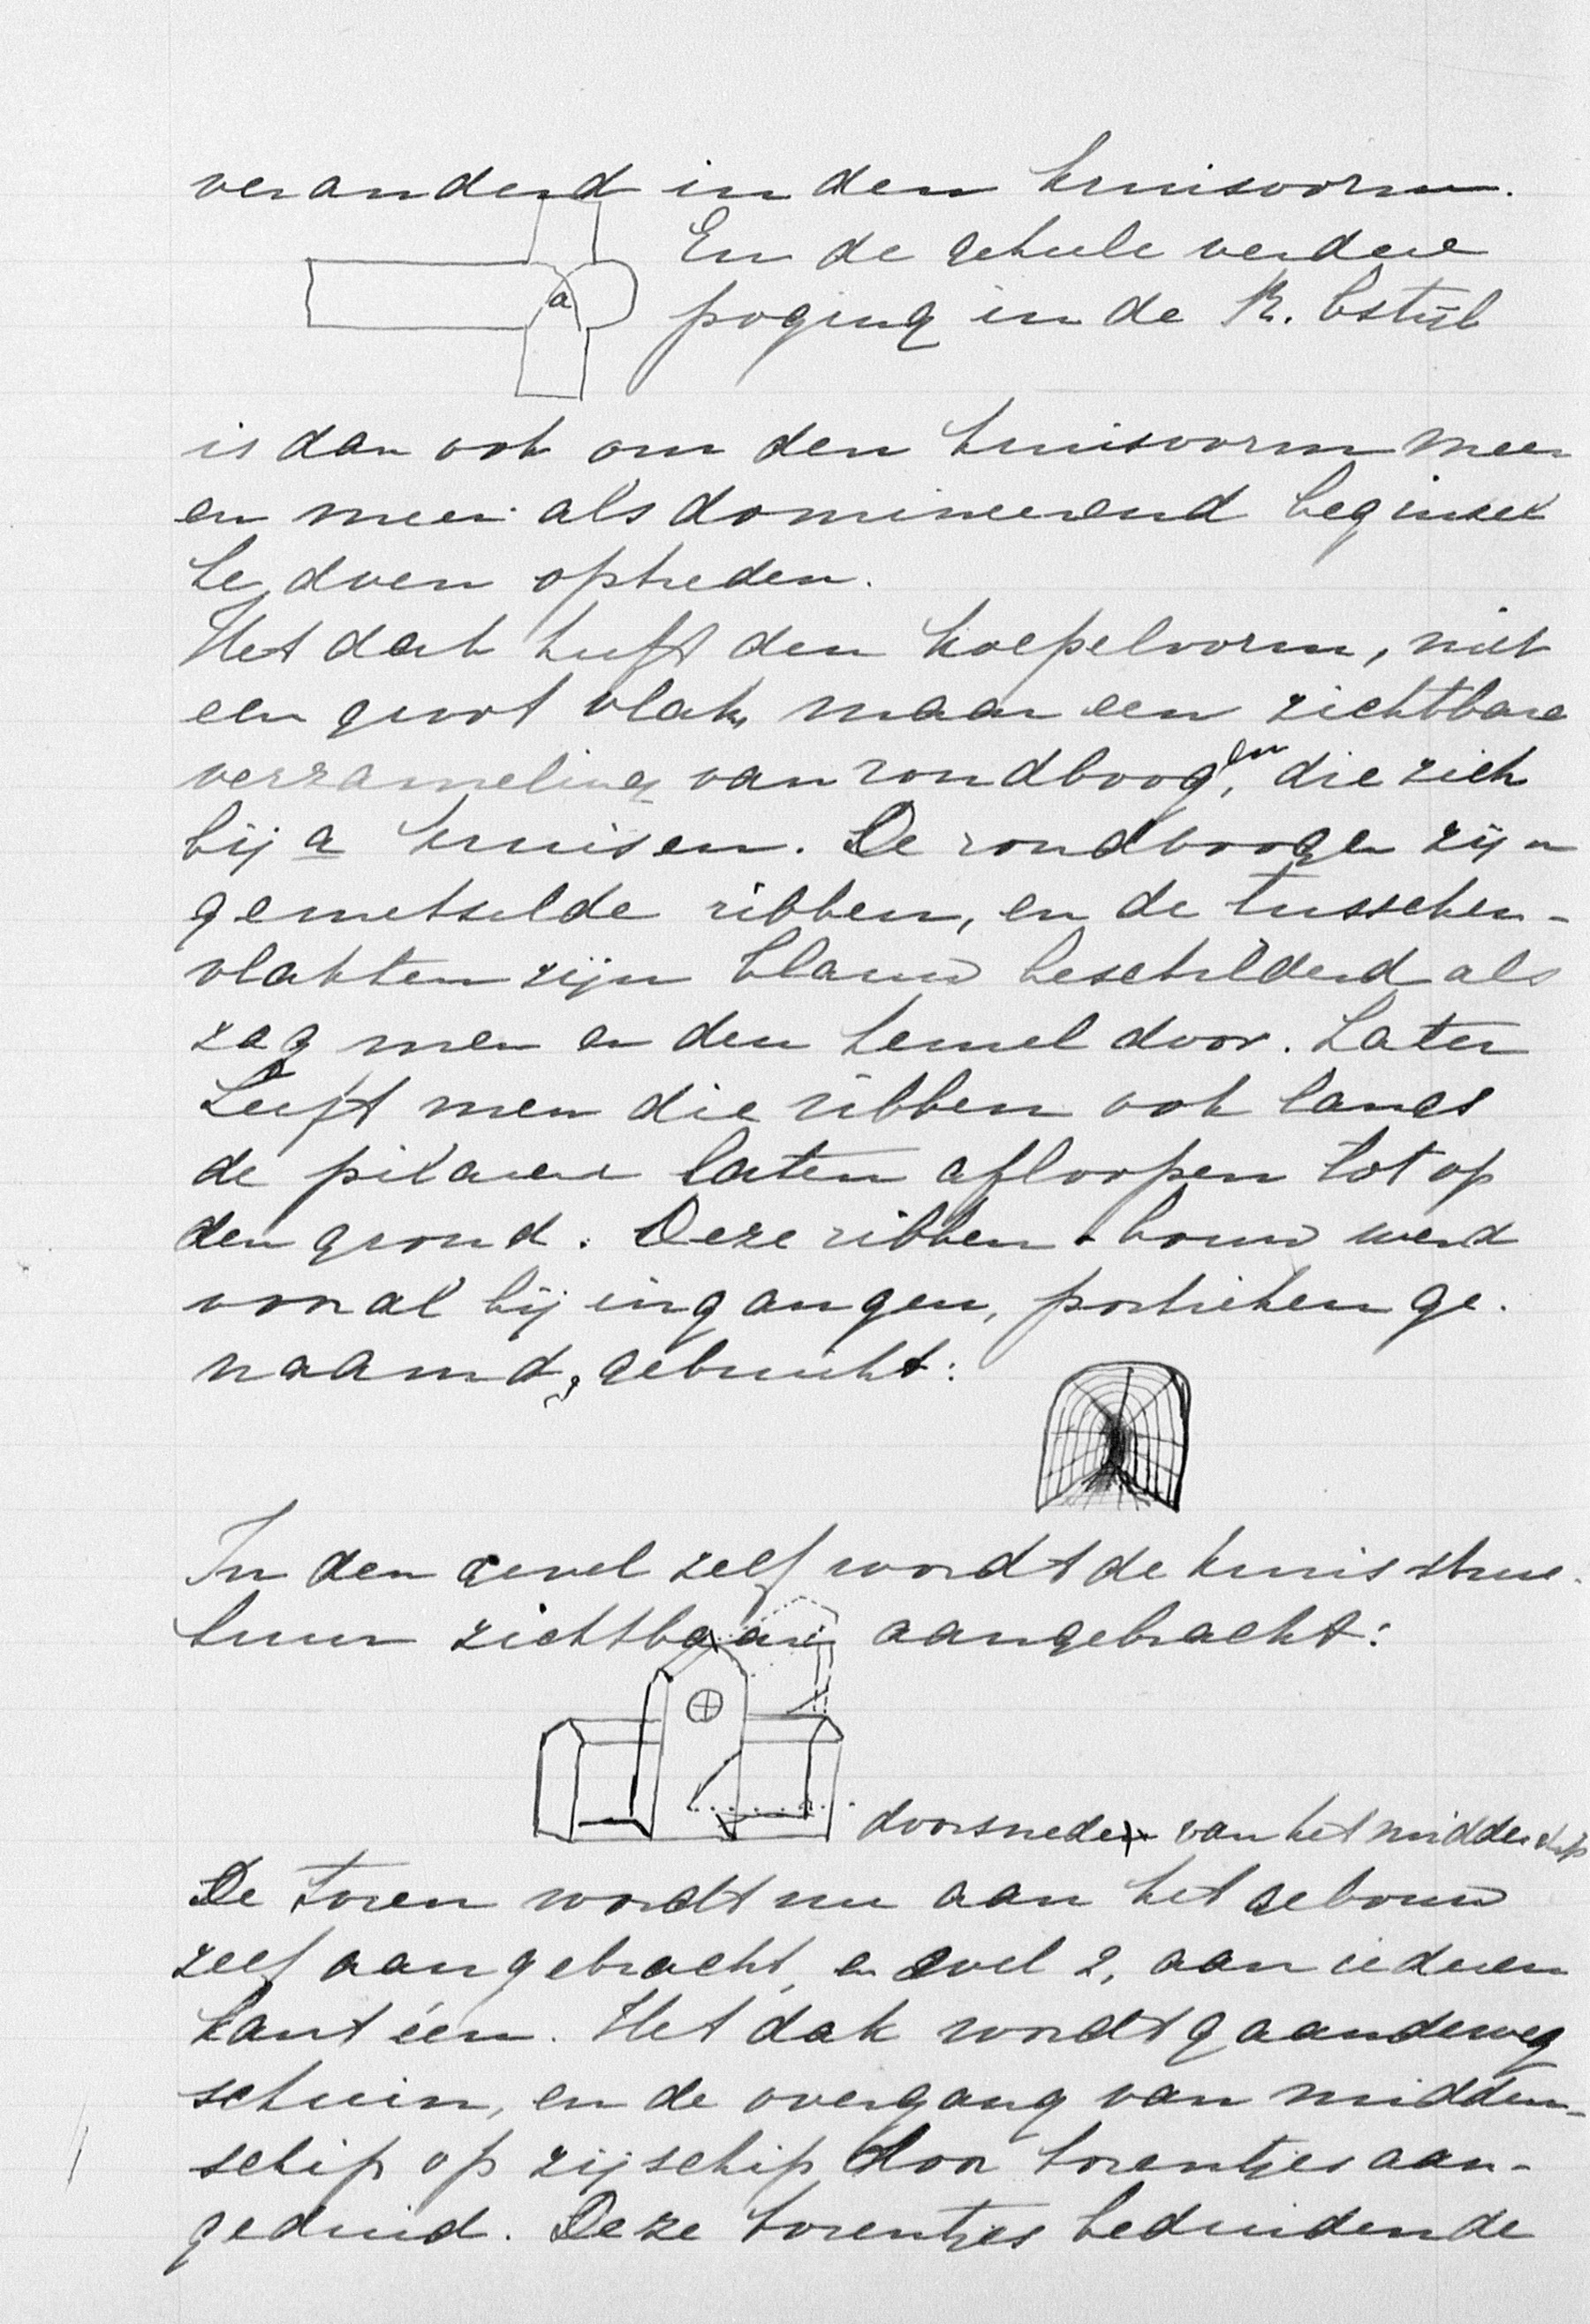 veranderd in den kruisvorm.
En de geheele verdere
poging in de R. bstijl
a
is dan ook om den kruisvorm meer
en meer als domineerend beginsel
te doen optreden.
Het dak heeft den koepelvorm, niet
een groot vlak, maar een zichtbare
verzameling van rondboogen, die zich
bij a kruisen. De rondboogen zijn
gemetselde ribben, en de tusschen-
vlakken zijn blauw beschilderd als
zag men er den hemel door. Later
heeft men die ribben ook langs
de pilaren laten afloopen tot op
den grond. Deze ribben-bouw werd
vooral bij ingangen, portieken ge-
naamd, gebruikt:
In den gevel zelf wordt de kruis struc-
tuur zichtbaar aangebracht:
doorsnede van het middenschip
De toren wordt nu aan het gebouw
zelf aangebracht, en wel 2, aan iederen
kant één. Het dak wordt gaandeweg
schuin, en de overgang van midden-
schip op zijschip door torentjes aan-
geduid. Deze torentjes beduidende